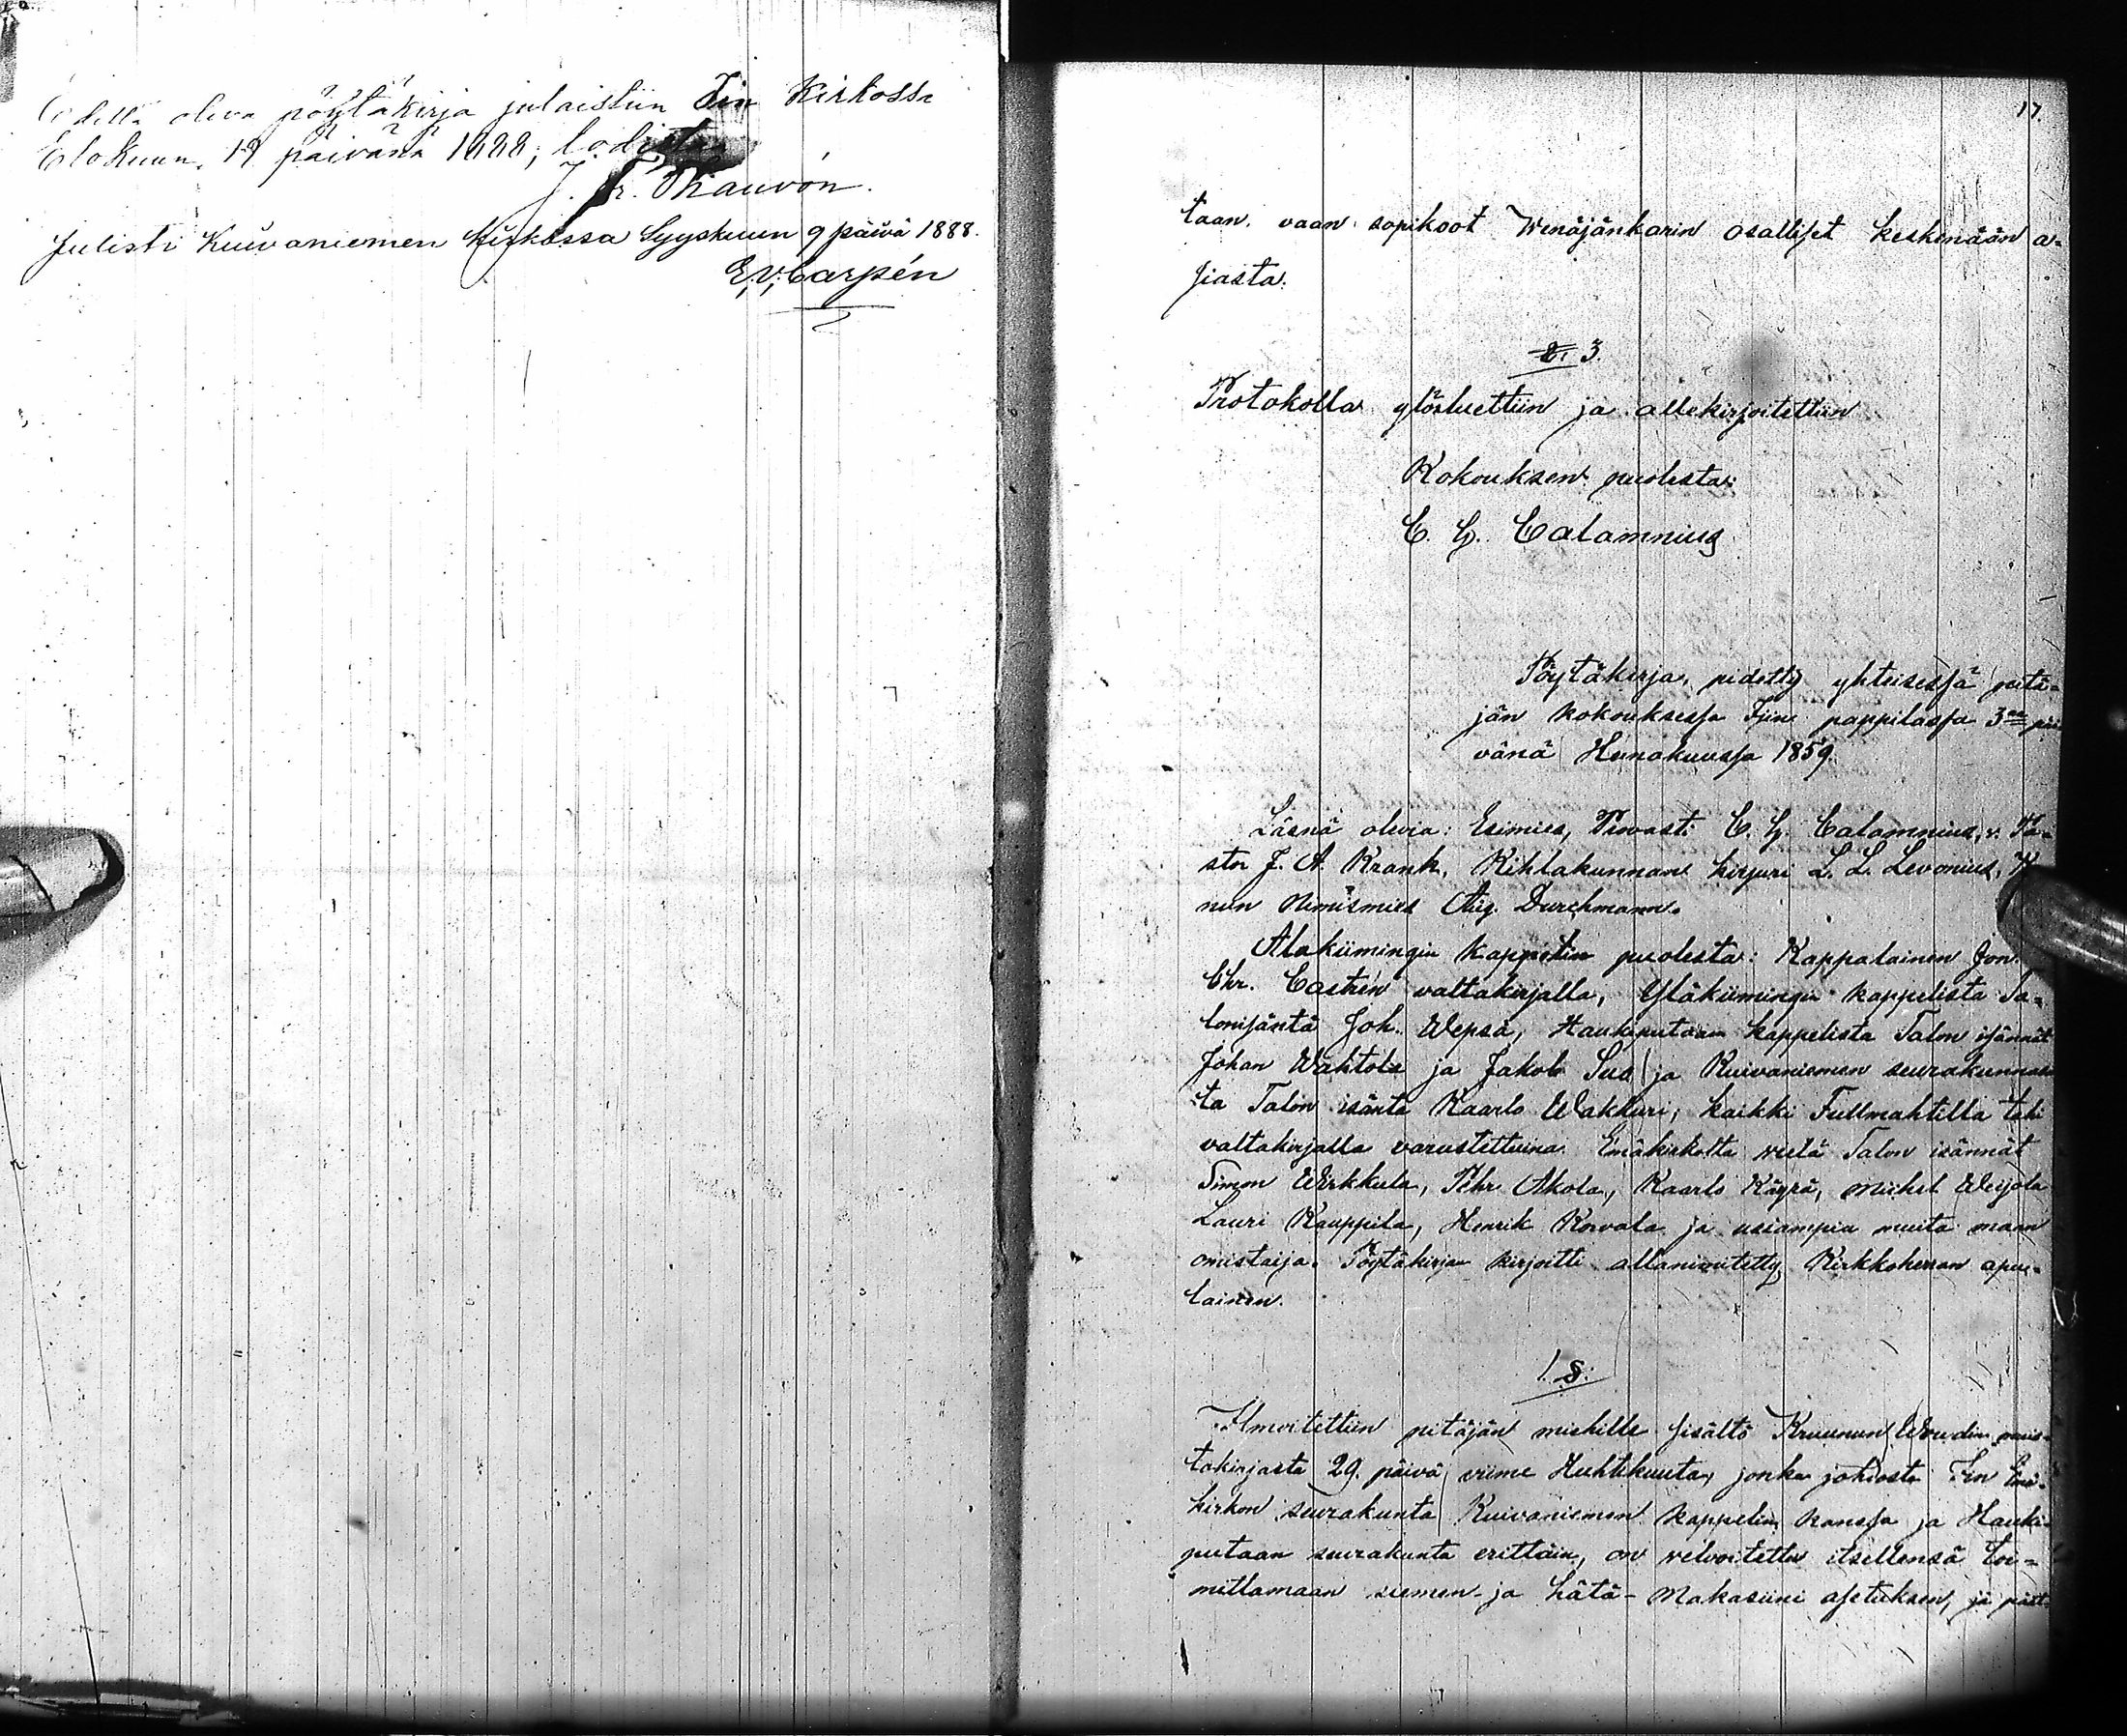 Edellä oleva pöytäkirja julaistiin Iin Kirkossa
Elokuun 19 päivänä 1888; todistaa
J. Fr. Thauvón.
Julisti Kuivaniemen Kirkossa Syyskuun 9 päivä 1888.
E. V. Carpén
17.
taan. vaan sopikoot Wenäjänkarin osalliset keskenään a-
siasta.
3.
Protokolla ylösluettiin ja allekirjoitettiin
Kokouksen puolesta:
C. G. Calamnius
Pöytäkirja, pidetty yhteisessä pitä-
jän kokouksessa Ijin pappilassa 3na päi
vänä Heinäkuussa 1859.
Läsnä olevia: Esimies, Provasti C. G. Calamnius, v. Pa-
stor J. A. Krank, Kihlakunnan kirjuri L. L. Levonius,
nun Nimismies Aug. Durchmann.
Alakiimingin Kappelin puolesta: Kappalainen Jon.
Chr. Castrén valtakirjalla, Yläkiimingin kappelista Ta-
lonisäntä Joh. Wepsä, Haukiputaan kappelista Talon isännät
Johan Wahtola ja Jakob Suo ja Kuivaniemen seurakunnas
ta Talon isäntä Kaarlo Wakkuri, kaikki Fullmahtilla tahi
valtakirjalla varustettuina. Emäkirkolta vielä Talon isännät
Simon Wirkkula, Pehr Akola, Kaarlo Käyrä, Michel Weijola
Lauri Kauppila, Henrik Korvala ja usiampia muita maan
omistaija. Pöytäkirjan kirjoitti allanimitetty Kirkkoherran apu-
lainen.
1. §.
Ilmoitettiin pitäjän miehille sisältö Kruunun Woudin muis-
tokirjasta 29. päivä viime Huhtikuuta, jonka johdosta Iin Emä-
kirkon seurakunta Kuivaniemen kappelin kanssa ja Hauki-
putaan seurakunta erittäin, on velvoitettu itsellensä toi-
mittamaan siemen- ja hätä- Makasiini asetuksen, ja